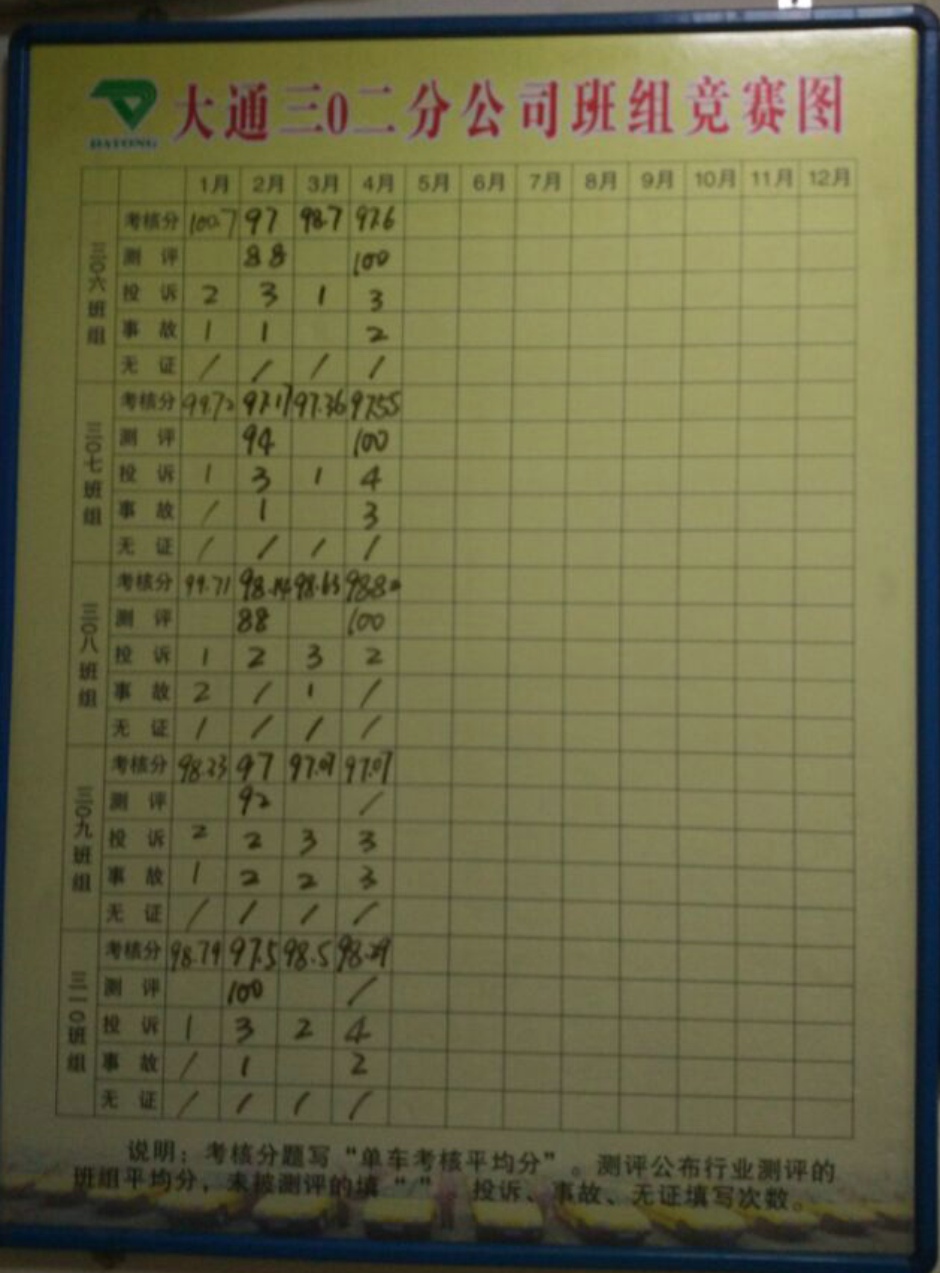 DATONG
大通三0二分公司班组竞赛图
1月 2月 3月 4月 5月 6月 7月 8月 9月 10月 11月 12月
三〇六班组
考核分 100.7 97 98.7 97.6
测评 88 100
投诉 2 3 1 3
事故 1 1 2
无证 / / / /
三〇七班组
考核分 99.72 97.17 97.36 97.55
测评 94 100
投诉 1 3 1 4
事故 / 1 3
无证 / / / /
三〇八班组
考核分 99.71 98.14 98.63
测评 88 100
投诉 1 2 3 2
事故 2 / 1 /
无证 / / / /
三〇九班组
考核分 98.23 97 97.07 97.07
测评 92 /
投诉 2 2 3 3
事故 1 2 2 3
无证 / / / /
三一〇班组
考核分 98.79 97.5 98.5
测评 100 /
投诉 1 3 2 4
事故 / 1 2
无证 / / / /
说明：考核分题写“单车考核平均分”。测评公布行业测评的
班组平均分，未被测评的填“/” 投诉、事故、无证填写次数。